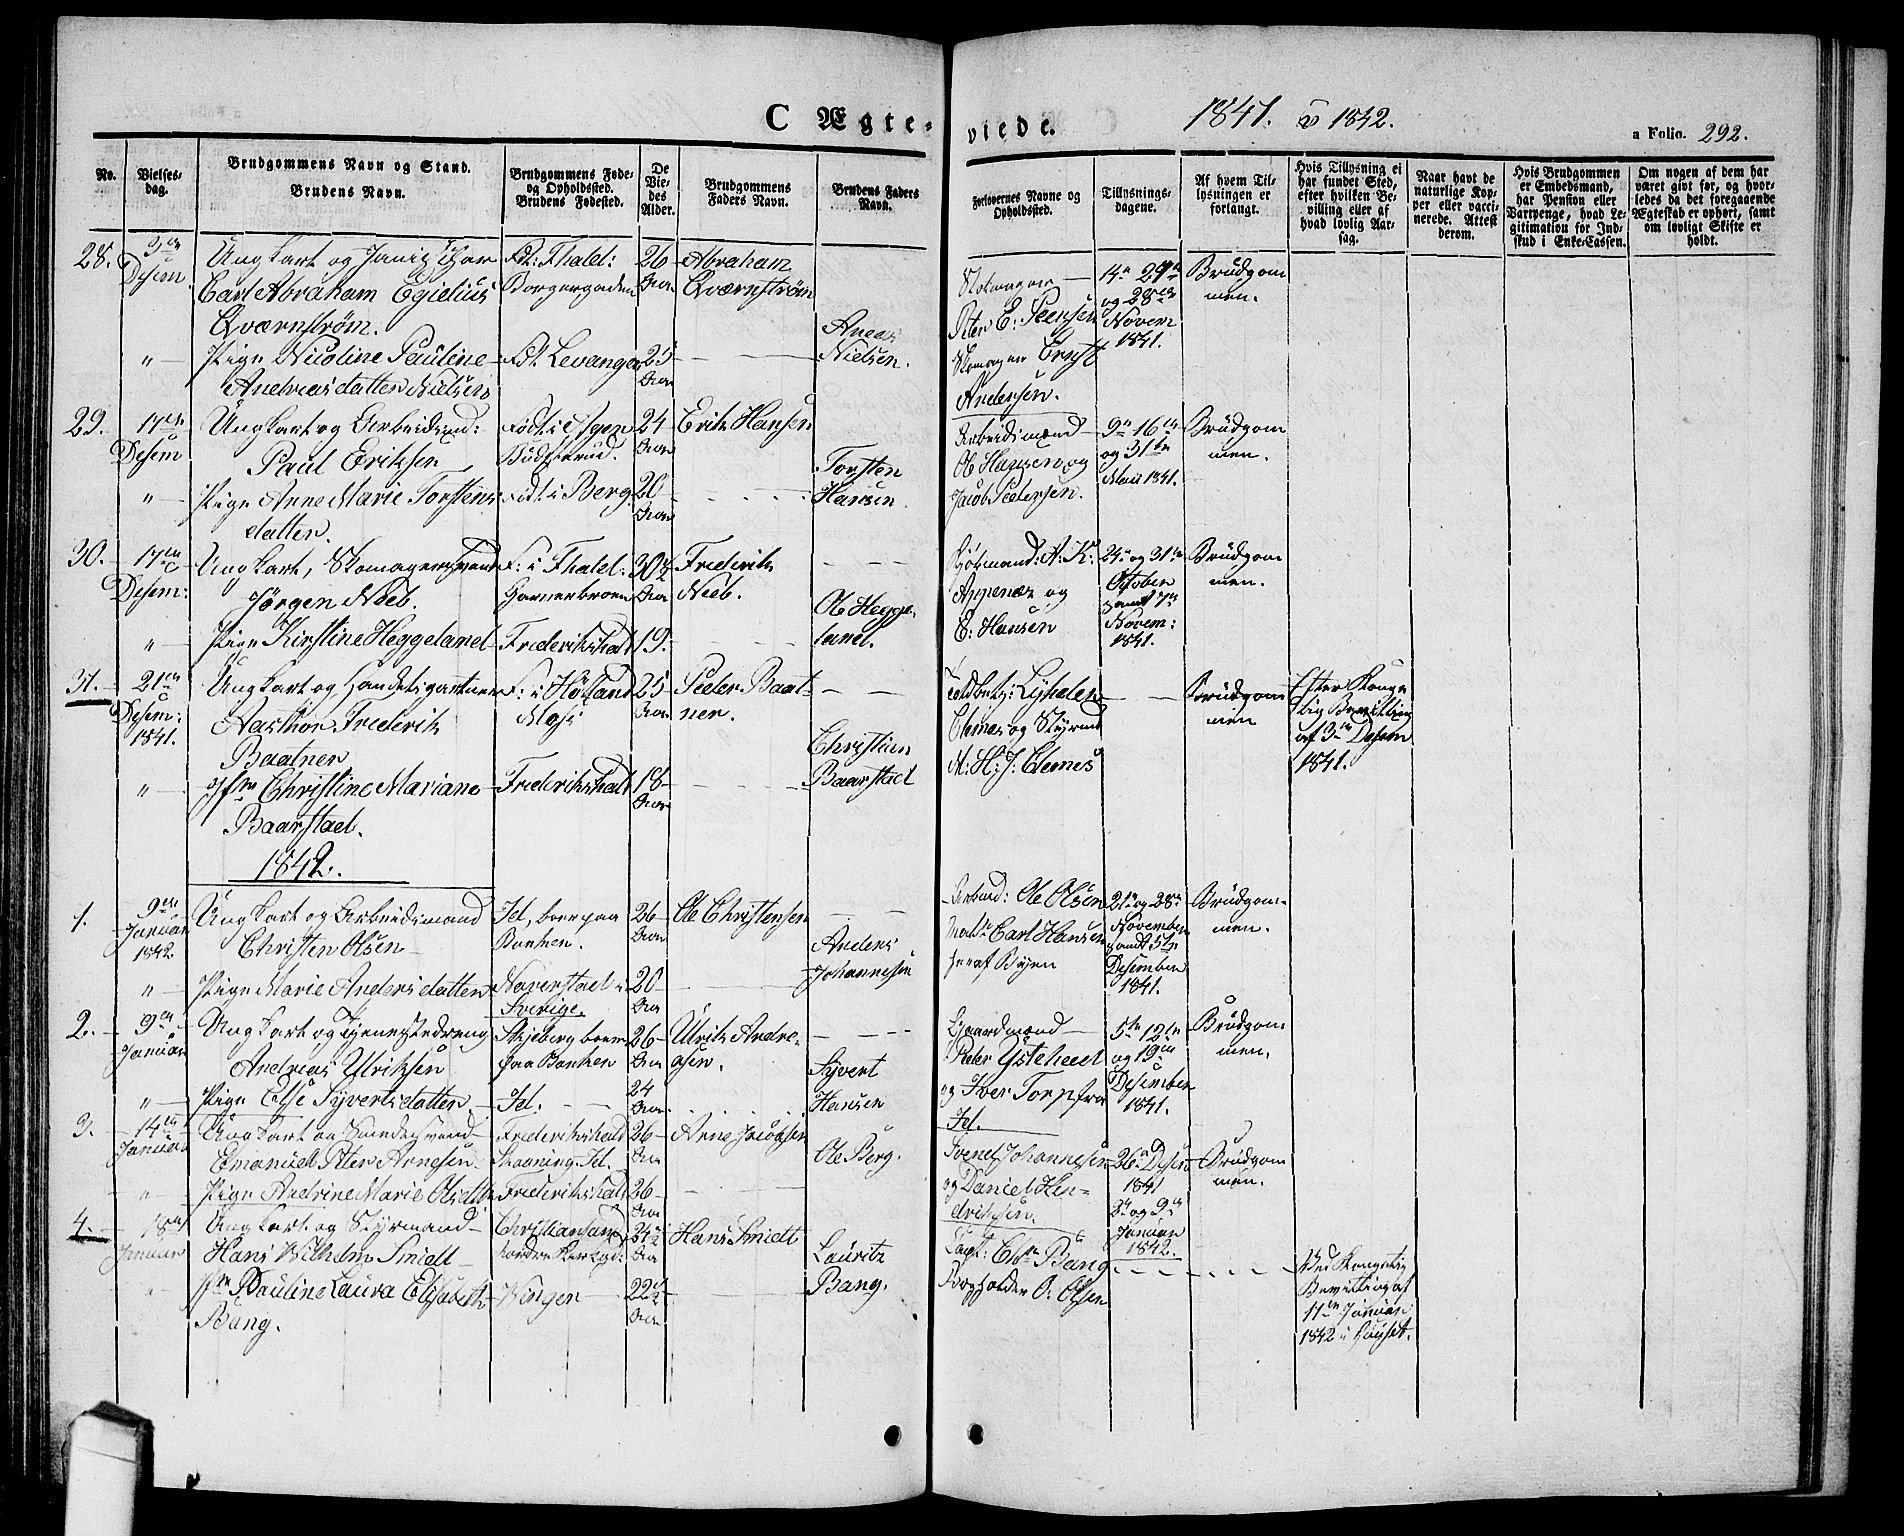 C Ægte-viede. 1841. & 1842. a Folio. 292.
No.
Vielses-dag.
Brudgommens Navn og Stand.
Brudens Navn.
Brudgommens Føde-
og Opholdssted.
Brudens Fødested.
De
Vie-
des
Alder.
Brudgommens
Faders Navn.
Brudens Faders
Navn.
Forlovernes Navne og
Opholdssted.
Tillysnings-
dagene.
Af hvem Til-
lysningen er
forlangt.
Hvis Tillysning ei
har fundet Sted,
efter hvilken Be-
villing eller af
hvad lovlig Aar-
sag.
Naar havt de
naturlige Kop-
per eller vacci-
nerede. Attest
derom.
Hvis Brudgommen
er Embedsmand,
har Pension eller
Vartpenge, hvad Le-
gitimation for Ind-
skud i Enke-Cassen.
Om nogen af dem har
været givt før, og hvor-
ledes da det foregaaende
Ægteskab er ophørt, samt
om lovligt Skifte er
holdt.
28. Desem
Ungkarl og
Carl Abraham Egidius
Qværnstrøm.
F: i Fhald:
Borgergaden
26
Abraham
Qværnstrøm
Peter E:
Ernst
Andersen.
og 28de
Novem
1841.
Brudgom
men.
" Pige Nicoline Pauline
Andreasdatter Nielsen
Fdt Levanger
25
Nielsen.
29. 17de
Desem
Ungkarl og Arbeidsmd:
Paul Eriksen
24
Erik Hansen
Arbeidsmænd
Ole Hansen og
Jacob Petersen.
9de 16de
og 31te
1841.
Brudgom
men.
" Pige Anne Marie Torstens
datter.
Født i Berg
20
Torsten
Hansen
30. 17de
Desem:
Ungkarl, Skomagersvend
Jørgen Neeb.
F: i Fhald:
30½
Frederik
Neeb.
A: K:
og
E: Hansen
24de og 31te
October
samt 7de
Novem:
1841.
Brudgom
men.
" Pige Kirstine Heggeland
Frederikshald
19.
Ole Hegge-
land.
31. 21de
Desem:
1841.
Ungkarl og Handelsgartner
Frederik
Baatner
Moss
25
Peter Baat-
ner.
og Styrmd
M: H: J: Clemes
Brudgom
men
Efter Konge
lig Bevilling
af 3de Desem
1841.
" Jfr Christine Mariane
Baarstad.
Frederikshald
18
Christian
Baarstad
1842.
1. 9de
Januar
1842
Ungkarl og Arbeidsmand
Christen Olsen
Id, boer paa
Banken.
26
Ole Christensen
Arbmd: Ole Olsen
Carl Hansen
her af Byen
21de og 28de
November
samt 5te
Desember
1841.
Brudgom-
men.
" Pige Marie Andersdatter
Naverstad i
Sverige.
20
Anders
Johannesen
2. 9de
Januar
Ungkarl og Tjenestedreng
Andreas Ulriksen
Skjeberg boer
paa Banken
26
Ulrik Andre-
asen.
Gaardmænd
Peder Ystehed
og Iver Torp fra
Id.
5te 12te
og 19de
Desember
1841.
Brudgom
men.
" Pige Else Syvertsdatter
Id.
24
Syvert
Hansen
3. 14de
Januar
Ungkarl og Smedesvend
Emanuel Peter Arnesen
Frederikshald
26
Arne Jacobsen
Svend Johannesen
og Daniel Hen-
driksen.
26de Desem
1841
2de og 9de
Januar
1842.
Brudgom
men.
" Pige Andrine Marie Olsdtr
Frederikshald
26
Ole Berg.
4. 18de
Januar
Ungkarl og Styrmand
Hans Wilhelm Smidt
Christiansand
24½
Hans Smidt
Bang
O: Olsen
Ved Kongelig
Bevilling af
11te Januar
1842
" Jfr Pauline Laura Elisabeth
Bang.
22½
Lauritz
Bang.